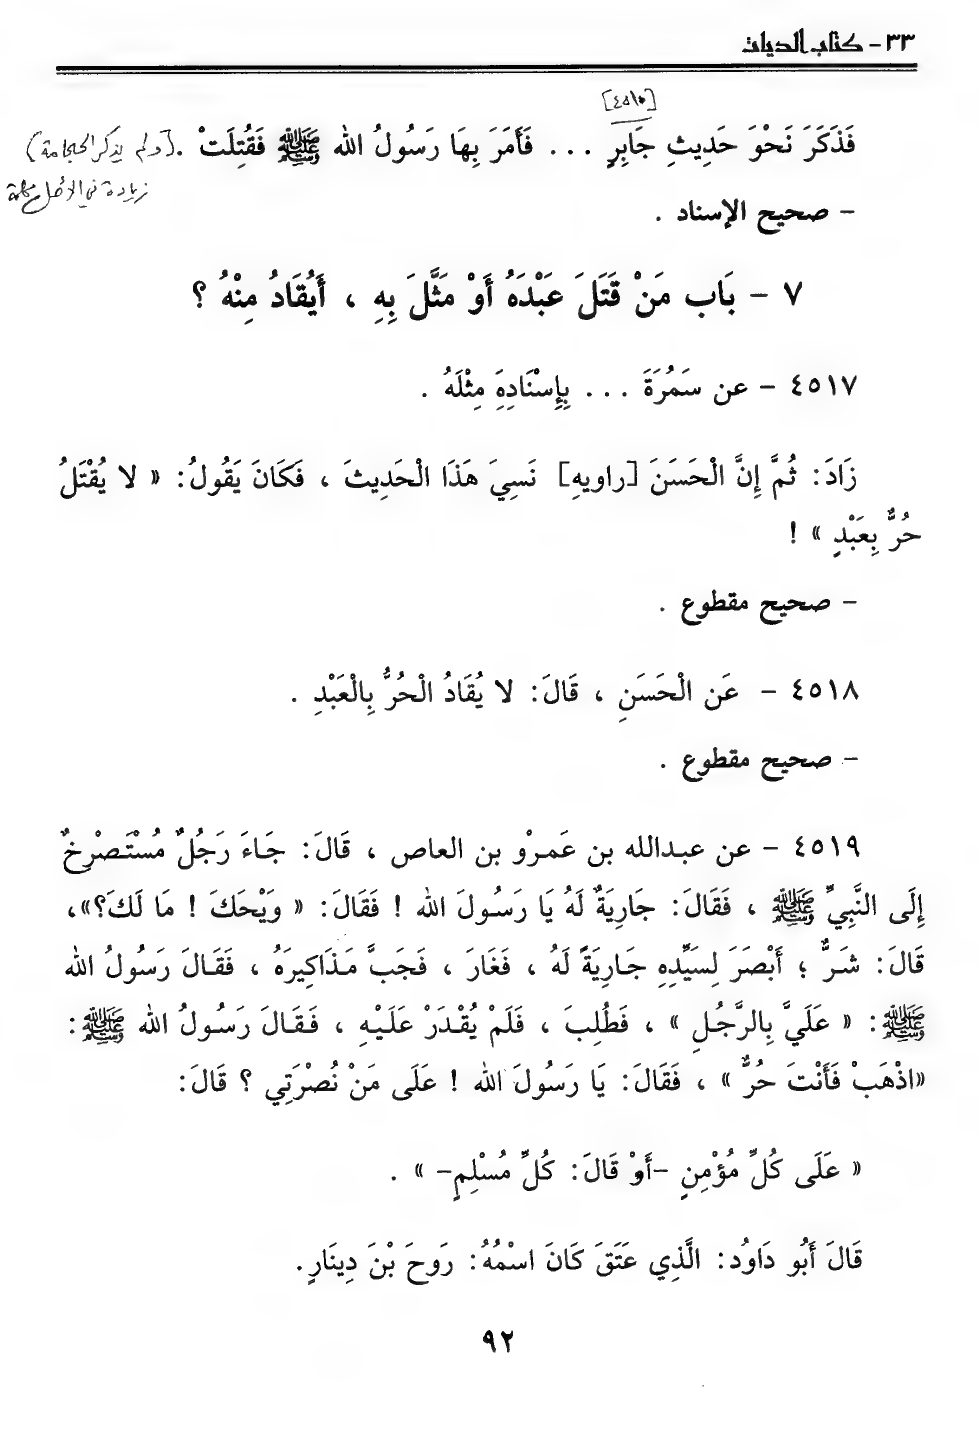 ٣٣ - كتاب الديات
[٤٥١٠]
فَذَكَرَ نَحْوَ حَدِيثِ جَابِرٍ . . . فَأَمَرَ بِهَا رَسُولُ الله ﷺ فَقُتِلَتْ . [ولم يذكر الحجامة)
زيادة في الأصل مهمة
- صحيح الإسناد .
٧ - بَاب مَنْ قَتَلَ عَبْدَهُ أَوْ مَثَّلَ بِهِ ، أَيُقَادُ مِنْهُ ؟
٤٥١٧ - عن سَمُرَةَ . . . بِإِسْنَادِهَِ مِثْلَهُ .
زَادَ: ثُمَّ إِنَّ الْحَسَنَ [راويهِ] نَسِيَ هَذَا الْحَدِيثَ ، فَكَانَ يَقُولُ: « لا يُقْتَلُ
حُرٌّ بِعَبْدٍ » !
- صحيح مقطوع .
٤٥١٨ - عَن الْحَسَنِ ، قَالَ: لا يُقَادُ الْحُرُّ بِالْعَبْدِ .
- صحيح مقطوع .
٤٥١٩ - عن عبدالله بن عَمرْو بن العاص ، قَالَ: جَاءَ رَجُلٌ مُسْتَصْرِخٌ
إِلَى النَّبِيِّ ﷺ ، فَقَالَ: جَارِيَةٌ لَهُ يَا رَسُولَ الله ! فَقَالَ: « وَيْحَكَ ! مَا لَكَ؟»،
قَالَ: شَرٌّ ؛ أَبْصَرَ لِسَيِّدِهِ جَارِيَةً لَهُ ، فَغَارَ ، فَجَبَّ مَذَاكِيرَهُ ، فَقَالَ رَسُولُ الله
ﷺ: « عَلَيَّ بِالرَّجُلِ » ، فَطُلِبَ ، فَلَمْ يُقْدَرْ عَلَيْهِ ، فَقَالَ رَسُولُ الله ﷺ:
«اذْهَبْ فَأَنْتَ حُرٌّ » ، فَقَالَ: يَا رَسُولَ الله ! عَلَى مَنْ نُصْرَتِي ؟ قَالَ:
« عَلَى كُلِّ مُؤْمِنٍ -أَوْ قَالَ: كُلِّ مُسْلِمٍ- » .
قَالَ أَبُو دَاوُد: الَّذِي عَتَقَ كَانَ اسْمُهُ: رَوحَ بْنَ دِينَارٍ.
٩٢